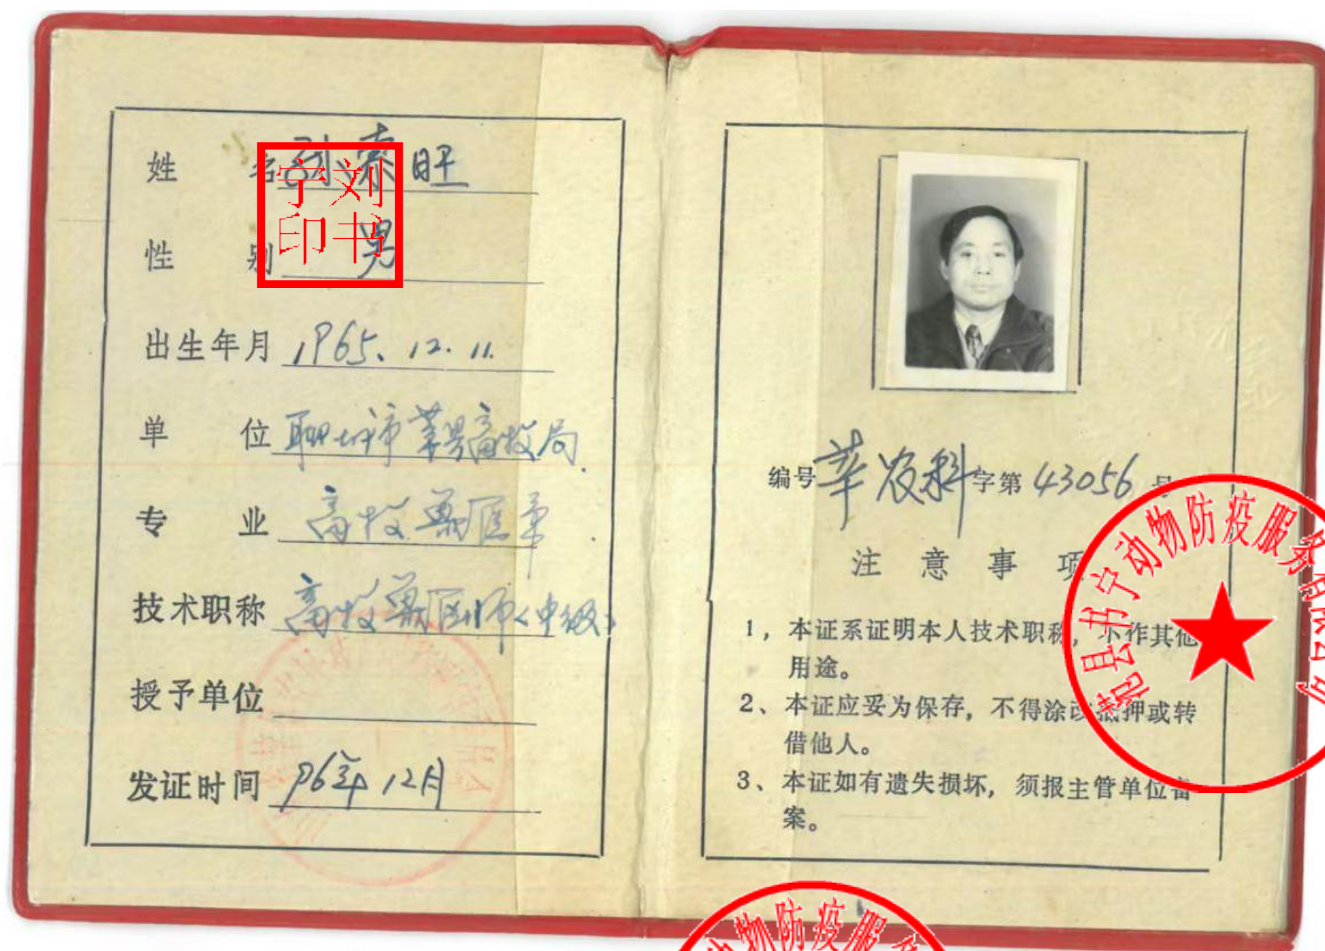 姓 名 刘索旺
性 别 男
刘书宁印
出生年月 1965. 12. 11.
单 位 聊城市莘县畜牧局
专 业 畜牧兽医
技术职称 畜牧兽医师(中级)
授予单位
发证时间 96年12月
编号 莘农科字第 43056 号
注意事项
1，本证系证明本人技术职称，不作其他
用途。
2、本证应妥为保存，不得涂改抵押或转
借他人。
3、本证如有遗失损坏，须报主管单位备
案。
莘县书宁动物防疫服务有限公司
动物防疫服务